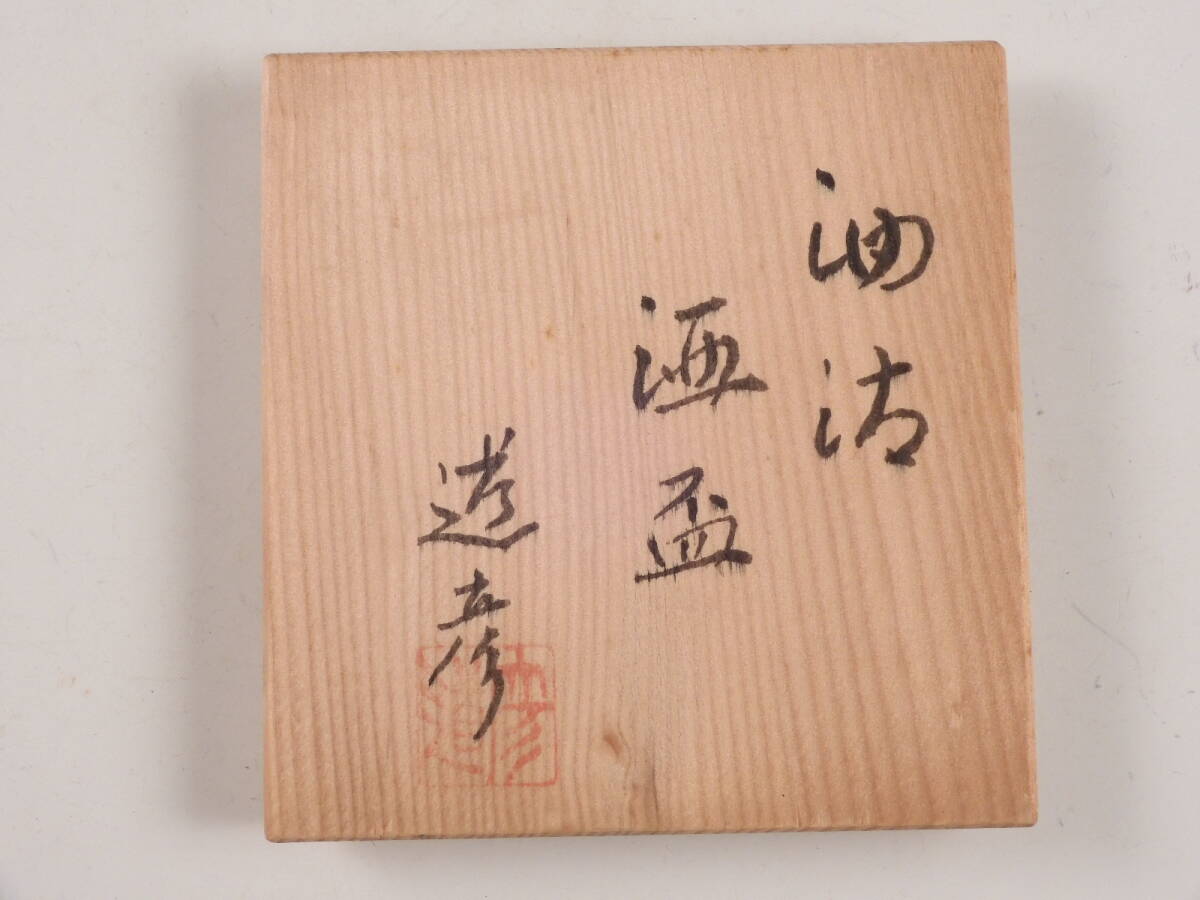 油滴
酒盃
彦